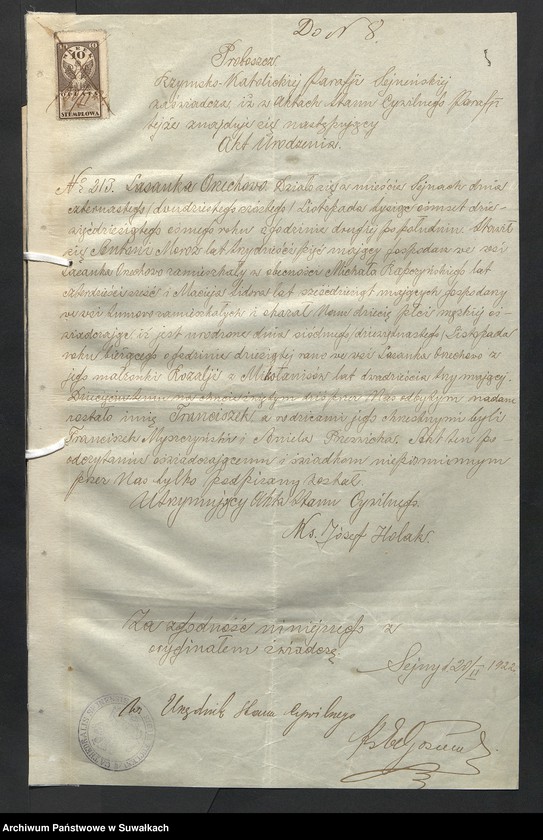 Do N 8.
10 10
10
STEMPLOWA
Proboszcz
Rzymsko-Katolickiej Parafji Sejneńskiej
zaświadcza iż w Aktach Stanu Cywilnego Parafji
tejże znajduje się następujący
Akt Urodzenia.
Nr 213. Łasanka Orzechowo. Działo się w mieście Sejnach dnia
czternastego /dwudziestego szóstego/ Listopada tysiąc ośmset dzie-
więćdziesiątego ósmego roku o godzinie drugiej po południu. Stawił
się Antoni Moroz lat trzydzieści pięć mający gospodarz we wsi
Łasanka Orzechowo zamieszkały w obecności Michała Rapczyńskiego lat
czterdzieści sześć i Macieja lat sześćdziesiąt mających gospodarzy
we wsi zamieszkałych i okazał Nam dziecię płci męzkiej oś-
wiadczając iż jest urodzone dnia siódmego /dziewiętnastego/ Listopada
roku bieżącego o godzinie dziesiątej rano we wsi Łasanka Orzechowo z
jego małżonki Rozalji z Mikołanisów lat dwadzieścia trzy mającej.
Dziecięciu temu na Chrzcie świętym przez Nas odbytym nadane
zostało imię Franciszek a rodzicami jego chrzestnymi byli
Franciszek Myszczyński i Aniela. Akt ten po
odczytaniu oświadczającemu i świadkom niepiśmiennym
przez Nas tylko podpisany został.
Utrzymujący Akta Stanu Cywilnego.
Ks. Józef Holak.
Za zgodność niniejszego z
oryginałem świadczę
Sejny d 20/II 1922
Urzędnik Stanu Cywilnego
Archiwum Państwowe w Suwałkach